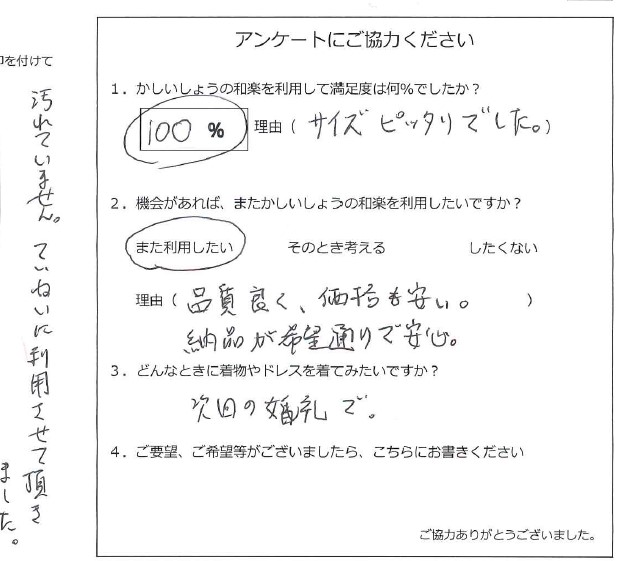 アンケートにご協力ください
1．かしいしょうの和楽を利用して満足度は何％でしたか？
100 ％ 理由（ サイズ ピッタリでした。）
2．機会があれば、またかしいしょうの和楽を利用したいですか？
また利用したい そのとき考える したくない
理由（ 品質良く、価格も安い。 ）
納品が希望通りで安心。
3．どんなときに着物やドレスを着てみたいですか？
次回の婚礼で。
4．ご要望、ご希望等がございましたら、こちらにお書きください
ご協力ありがとうございました。
を付けて
汚れていません。ていねいに利用させて頂き
ました。